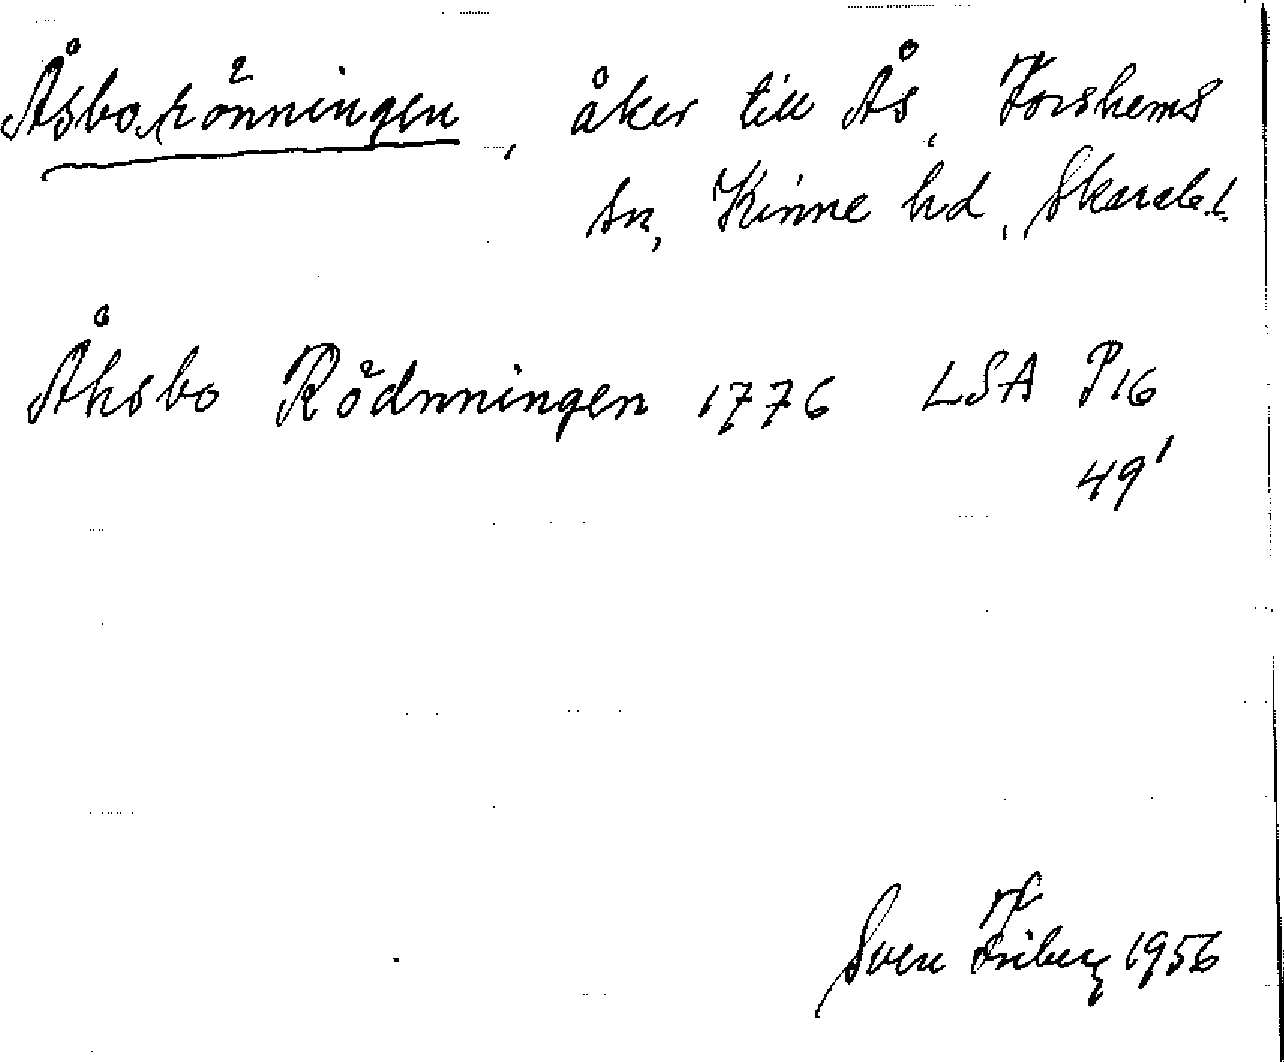 Åsborönningen, åker till Ås, Forshems
sn, Kinne hd, Skarab.l.
Åhsbo Rödnningen 1776 LSA P16
49'
Sven Friberg 1956